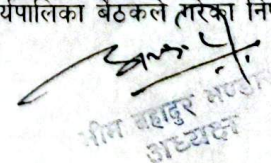 र्यपालिका बैठकले गरेका नि
भीम बहादुर भण्डा
अध्यक्ष